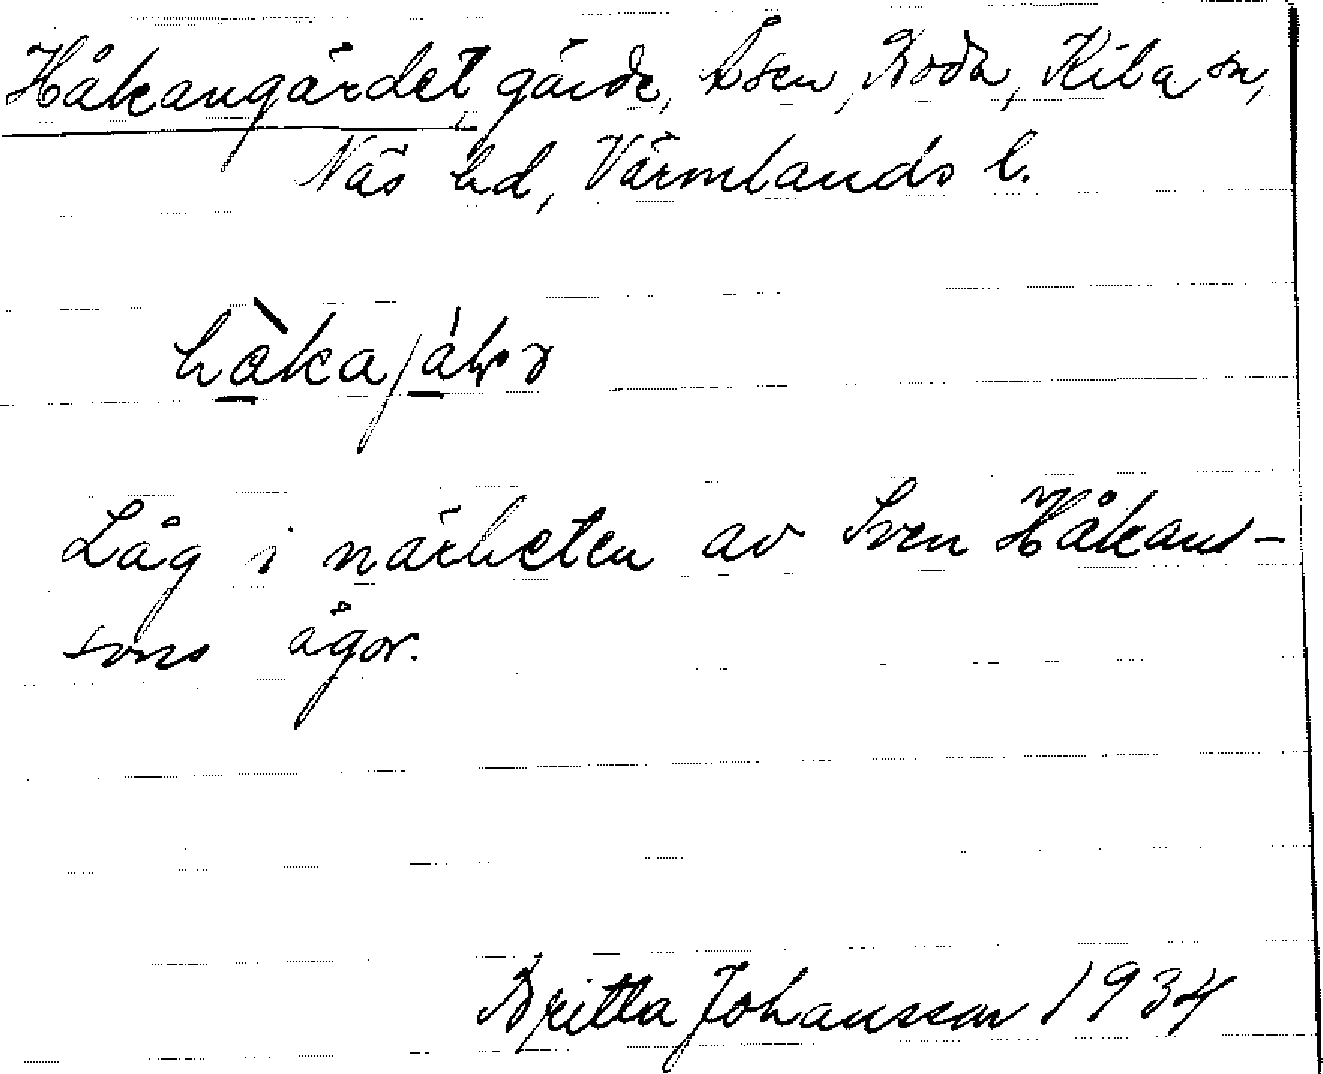 Håkangärdet, gärde, Åsen, Boda, Kila sn,
Näs hd, Värmlands l.
Låg i närheten av Sven Håkans-
sons ägor.
Britta Johansson 1934